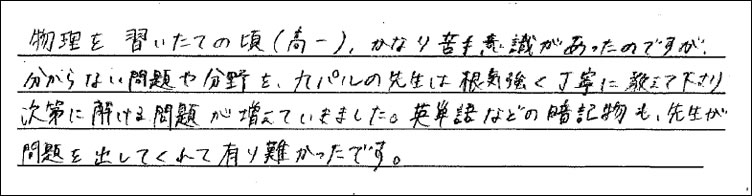 物理を習いたての頃(高一)、かなり苦手意識があったのですが、
分からない問題や分野を、カパルの先生は根気強く丁寧に教えて下さり
次第に解ける問題が増えていきました。英単語などの暗記物も、先生が
問題を出してくれて有り難かったです。